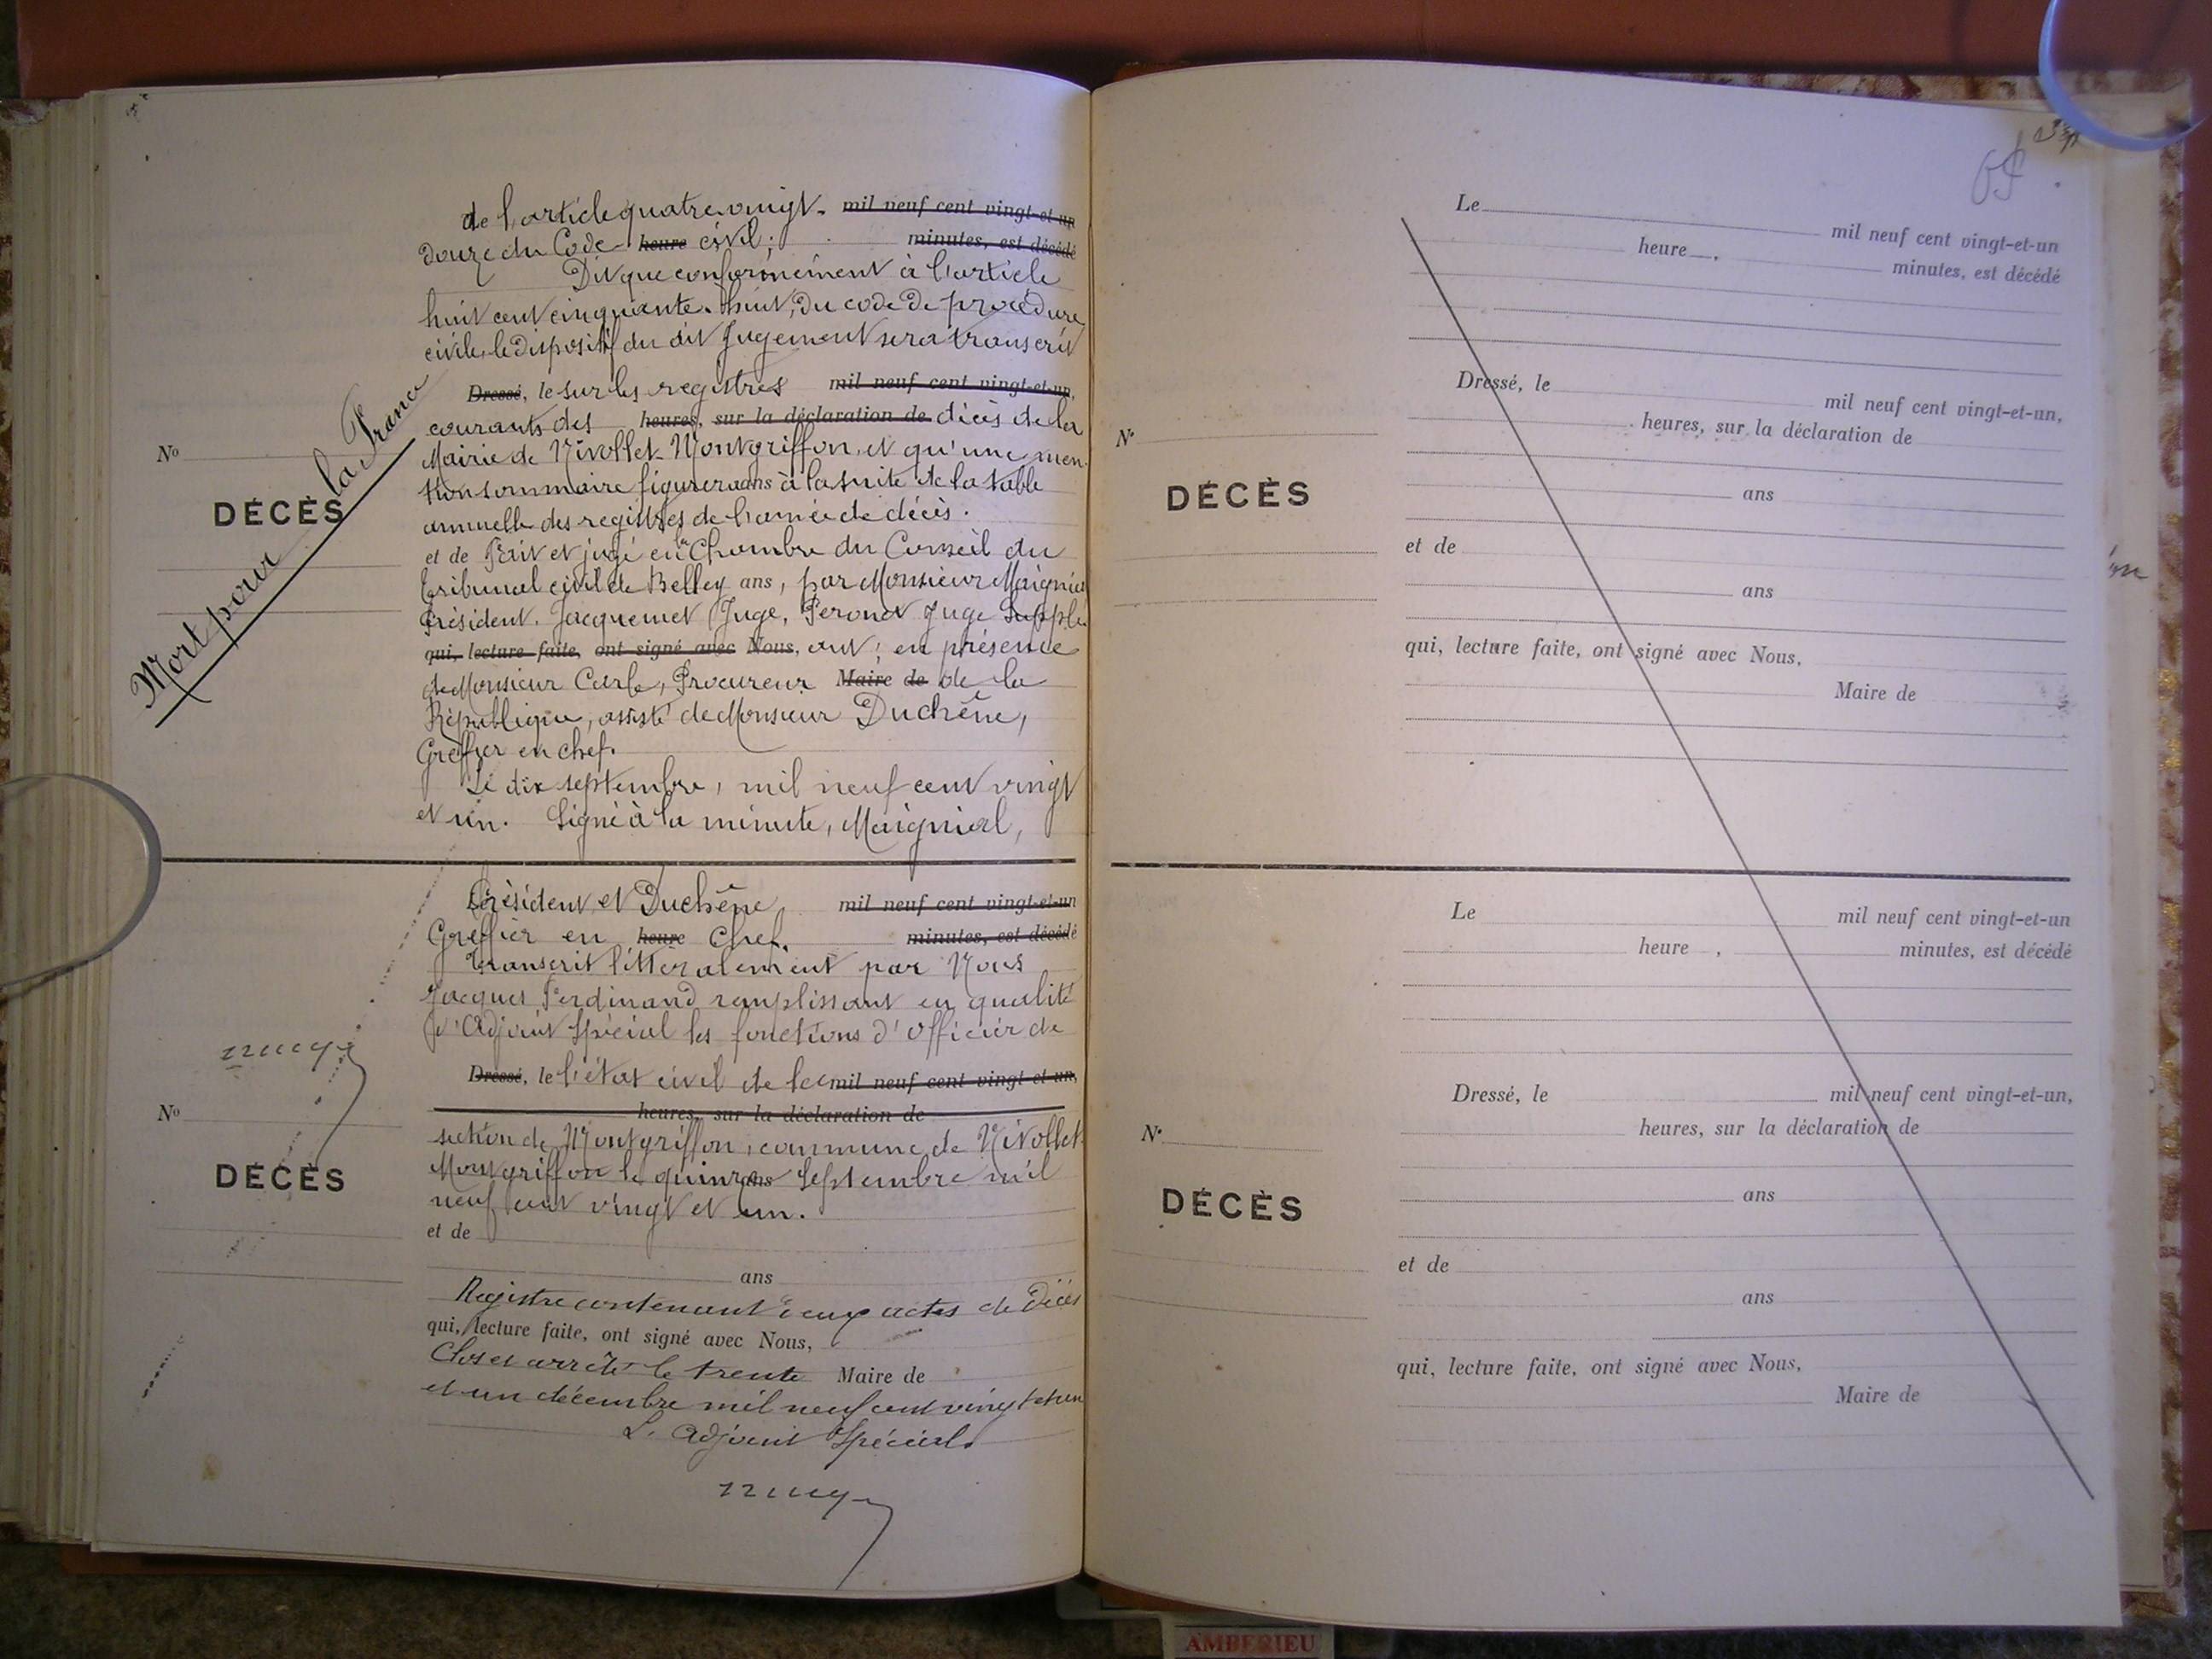 de l'article quatre vingt- mil neuf cent vingt-et-un
douze du Code heure civil; minutes, est décédé
Dit que conformément à l'article
huit cent cinquante-huit, du code de procédure
civile, le dispositif du dit Jugement sera transcrit
Dressé, le sur les registres mil neuf cent vingt-et-un,
courants des heures, sur la déclaration de décès de la
Mairie de Nivollet-Montgriffon, et qu'une men-
tion sommaire figurera ans à la suite de la table
annuelle des registres de l'année de décès.
et de Fait et jugé en la Chambre du Conseil du
tribunal civil de Belley ans, par Monsieur Maignial
Président, Jacquemet Juge, Peronet Juge Supplé
qui, lecture faite, ont signé avec Nous, ant; en présence
de Monsieur Procureur Maire de de la
République, assisté de Monsieur Duchêne,
Greffier en chef.
Le dix septembre, mil neuf cent vingt
et un. Signé à la minute, Maignial,
Mort pour la France
No
DÉCÈS
Président et Duchêne, mil neuf cent vingt-et-un
Greffier en heure Chef. minutes, est décédé
Transcrit littéralement par Nous
Jacques Ferdinand remplissant en qualité
d'Adjoint Spécial les fonctions d'Officier de
Dressé, le l'état civil de la mil neuf cent vingt-et-un,
heures, sur la déclaration de
section de Montgriffon, commune de Nivollet
Montgriffon le quinze ans Septembre mil
neuf cent vingt et un.
et de
ans
Registre contenant deux actes de Décès
qui, lecture faite, ont signé avec Nous,
Clos et arrêté le trente Maire de
et un décembre mil neuf cent vingt et un
L'Adjoint Spécial
No
DÉCÈS
Le mil neuf cent vingt-et-un
heure , minutes, est décédé
Dressé, le mil neuf cent vingt-et-un,
heures, sur la déclaration de
N°
DÉCÈS
ans
et de
ans
qui, lecture faite, ont signé avec Nous,
Maire de
Le mil neuf cent vingt-et-un
heure , minutes, est décédé
Dressé, le mil neuf cent vingt-et-un,
heures, sur la déclaration de
N°
DÉCÈS
ans
et de
ans
qui, lecture faite, ont signé avec Nous,
Maire de
AMBERIEU